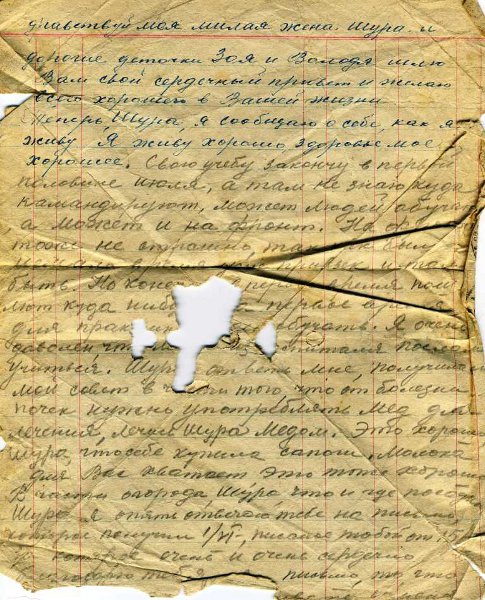 здравствуй моя милая жена. Шура. и
дорогие деточки Зоя и Володя шлю
Вам свой сердечный привет и желаю
всего хорошего в Вашей жизни
Теперь, Шура, я сообщаю о себе, как я
живу. Я живу хорошо здоровье мое
хорошее. Свою учебу закончу в первой
половине июля, а там не знаю куда
командируют, может людей обуча
а может и на фронт. На
тоже не страшно так как был
быть. Но время пош
лют куда нибудь
для обучать. Я очень
учиться. Шура ответь мне, получила
мой совет в части того что от болезни
почек нужно употреблять мед для
лечения, лечись Шура медом. Это хорошо
Шура, что себе купила сапоги. Молока
для Вас хватает это тоже хорошо
В части огорода Шура что и где поса
Шура я опять отвечаю тебе на письмо,
которое получил 1/VI, писаное тобой от 15
которое очень и очень сердечно
тебя письмо, то что